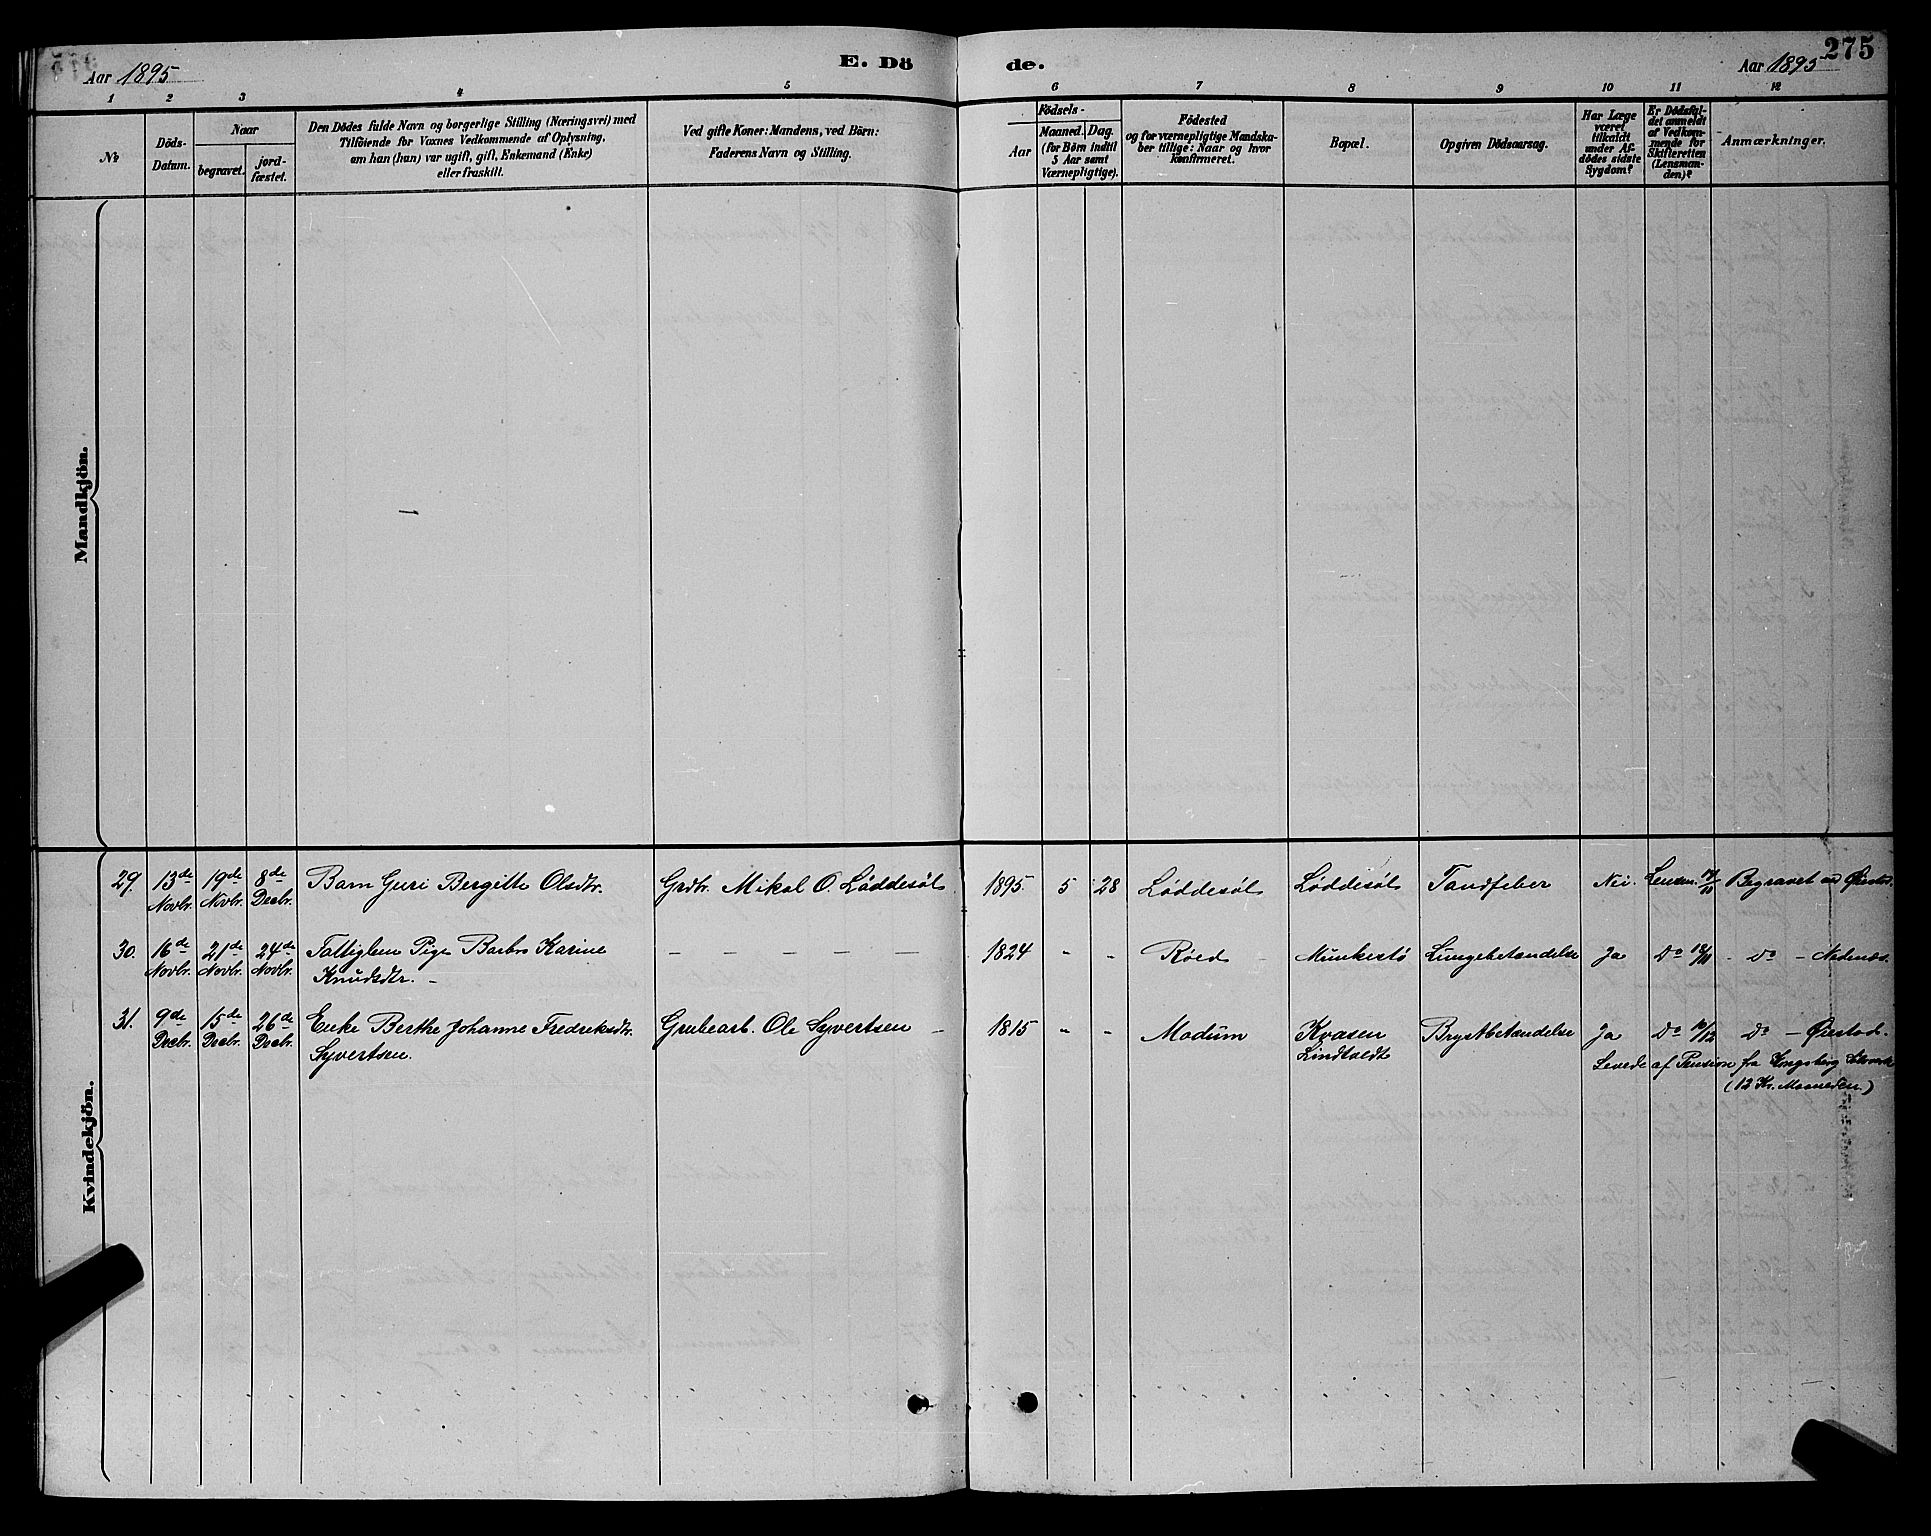 Aar 1895
E. Dö
de.
Aar 1895
275
1 2 3 4 5 6 7 8 9 10 11 12
No
Döds-
Datum.
Naar
begravet.
jord-
fæstet.
Den Dödes fulde Navn og borgerlige Stilling (Næringsvei) med
Tilföiende for Voxnes Vedkommende af Oplysning,
om han (hun) var ugift, gift, Enkemand (Enke)
eller fraskilt.
Ved gifte Koner: Mandens, ved Börn:
Faderens Navn og Stilling.
Födsels-
Aar
Maaned. Dag.
(for Börn indtil
5 Aar samt
Værnepligtige).
Födested
og for værnepligtige Mandska-
ber tillige: Naar og hvor
konfirmeret.
Bopæl.
Opgiven Dödsaarsag.
Har Læge
været
tilkaldt
under Af-
dödes sidste
Sygdom?
Er Dödsfal-
det anmeldt
af Vedkom-
mende for
Skifteretten
(Lensman-
den)?
Anmærkninger.
Mandkjön.
Kvindekjön.
29. 13de Novbr. 19de Novbr. 8de Decbr. Barn Guri Bergitte Olsdtr. Grdbr. Mikal O. Löddesöl 1895 5 28 Löddesöl Löddesöl Tandfeber Nei. Lensm. Begravet Øiestad.
30. 16de Novbr. 21de Novbr. 24de Novbr. Fattiglem Pige Barbro Karine — — — — — 1824 " " Röed Munkestö Lungebetændelse Ja Do 18/11 - do - Nedenæs.
Knudsdtr. -
31. 9de Decbr. 15de Decbr. 26de Decbr. Enke Berthe Johanne Fredriksdtr. Grubearb. Ole Syvertsen - 1815 " " Modum Kvasen Brystbetændelse Ja Do 10/12 Do - Øiestad.
Syvertsen. Lindtvedt Levede af Pension fra Kongsberg
(12 Kr. Maaneden.)